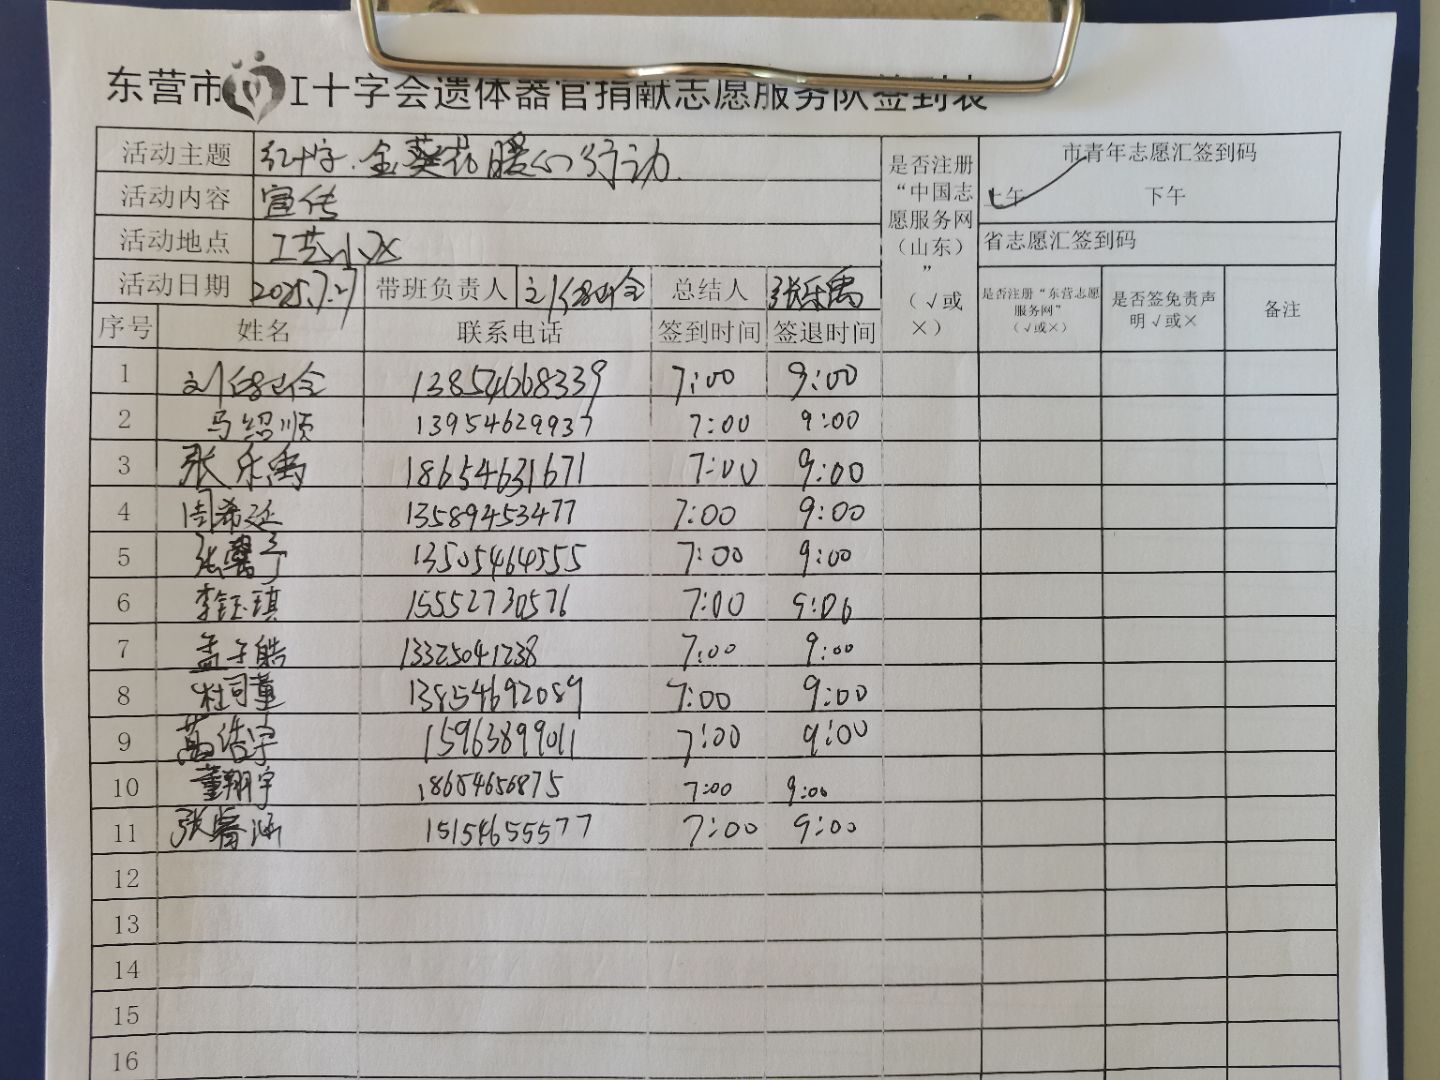 东营市红十字会遗体器官捐献志愿服务队签到表
活动主题 红十字·金葵花暖心行动
活动内容 宣传
活动地点 工艺小区
活动日期 2025.7.27 带班负责人 总结人 张乐禹
是否注册“中国志愿服务网（山东）”（√或×）
市青年志愿汇签到码
上午 ✓ 下午
省志愿汇签到码
是否注册“东营志愿服务网”（√或×） 是否签免责声明√或× 备注
序号 姓名 联系电话 签到时间 签退时间
1 刘 13854668339 7:00 9:00
2 马绍顺 13954629937 7:00 9:00
3 张乐禹 18654631671 7:00 9:00
4 周希廷 13589453477 7:00 9:00
5 张馨予 13505464555 7:00 9:00
6 李钰琪 15552730576 7:00 9:00
7 孟子皓 13325041238 7:00 9:00
8 杜司董 13854692089 7:00 9:00
9 浩宇 15963899011 7:00 9:00
10 董翔宇 18654656875 7:00 9:00
11 张睿涵 15154655577 7:00 9:00
12
13
14
15
16